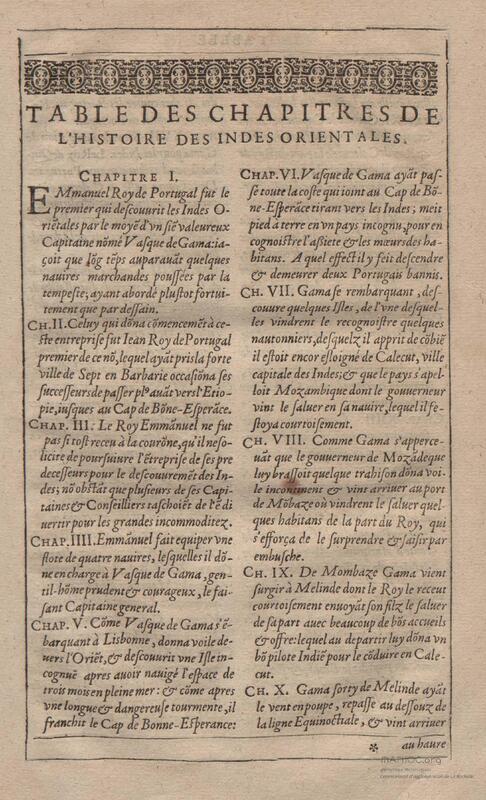 TABLE DES CHAPITRES DE
L'HISTOIRE DES INDES ORIENTALES.
CHAPITRE I.
EMmanuel Roy de Portugal fut le
premier qui descouurit les Indes O-
riẽtales par le moyẽ d'vn siẽ valeureux
Capitaine nõmé Vasque de Gama: ia-
çoit que lõg tẽps auparauãt quelques
nauires marchandes poussées par la
tempeste; ayant abordé plustot fortui-
tement que par dessain.
CH. II. Celuy qui dõna cõmencemẽt à ce-
ste entreprise fut Iean Roy de Portugal
premier de ce nõ, lequel ayãt pris la forte
ville de Sept en Barbarie occasiõna ses
successeurs de passer pl9 auãt vers l'Etio-
pie, iusques au Cap de Bõne-Esperãce.
CHAP. III. Le Roy Emmãnuel ne fut
pas si tost receu à la courõne, qu'il ne so-
licite de poursuiure l'ẽtreprise de ses pre
decesseurs pour le descouuremẽt des In-
des; nõ obstãt que plusieurs de ses Capi-
taines & Conseilliers taschoiẽt de l'ẽ di
uertir pour les grandes incommoditez.
CHAP. IIII. Emmanuel fait equiper vne
flote de quatre nauires, lesquelles il dõ-
ne en charge à Vasque de Gama, gen-
til-hõme prudent & courageux, le fai-
sant Capitaine general.
CHAP. V. Cõme Vasque de Gama s'ẽ-
barquant à Lisbonne, donna voile de-
uers l'Oriẽt, & descouurit vne Isle in-
cognuë apres auoir nauigé l'espace de
trois mois en pleine mer: & cõme apres
vne longue & dangereuse tourmente, il
franchit le Cap de Bonne-Esperance:
CHAP. VI. Vasque de Gama ayãt pas-
sé toute la coste qui ioint au Cap de Bõ-
ne-Esperãce tirant vers les Indes; meit
pied à terre en vn pays incognu, pour en
cognoistre l'assiete & les mœurs des ha-
bitans. A quel effect il y feit descendre
& demeurer deux Portugais bannis.
CH. VII. Gama se rembarquant, des-
couure quelques Isles, de l'vne desquel-
les vindrent le recognoistre quelques
nautonniers, desquelz il apprit de cõbiẽ
il estoit encor esloigné de Calecut, ville
capitale des Indes; & que le pays s'apel-
loit Mozambique dont le gouuerneur
vint le saluer en sa nauire, lequel il fe-
stoya courtoisement.
CH. VIII. Comme Gama s'apperce-
uãt que le gouuerneur de Mozãdeque
luy brassoit quelque trahison dõna voi-
le incontinent & vint arriuer au port
de Mõbaze où vindrent le saluer quel-
ques habitans de la part du Roy, qui
s'efforça de le surprendre & saisir par
embusche.
CH. IX. De Mombaze Gama vient
surgir à Melinde dont le Roy le receut
courtoisement enuoyãt son filz le saluer
de sa part auec beaucoup de bõs accueils
& offre: lequel au departir luy dõna vn
bõ pilote Indiẽ pour le cõduire en Cale-
cut.
CH. X. Gama sorty de Melinde ayãt
le vent en poupe, repasse au dessouz de
la ligne Equinoctiale, & vint arriuer
* au haure
manioc.org